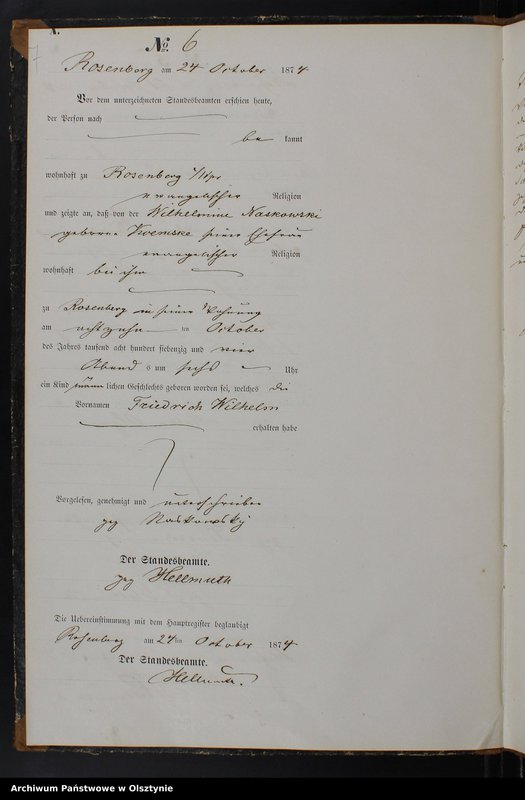 A.
7
No. 6
Rosenberg am 24 October 1874
Vor dem unterzeichneten Standesbeamten erschien heute,
der Person nach
be kannt
wohnhaft zu Rosenberg
evangelischer Religion
und zeigte an, daß von der Wilhelmine Naskowski
geborne seine Ehefrau
evangelischer Religion
wohnhaft bei ihm
zu Rosenberg in seiner Wohnung
am achtzehn ten October
des Jahres tausend acht hundert siebenzig und vier
Abend s um sechs Uhr
ein Kind männ lichen Geschlechts geboren worden sei, welches die
Vornamen Friedrich Wilhelm
erhalten habe
Vorgelesen, genehmigt und unterschrieben
gez Naskowsky
Der Standesbeamte.
gez Hellmuth
Die Uebereinstimmung mit dem Hauptregister beglaubigt
Rosenberg am 24 ten October 1874
Der Standesbeamte.
Hellmuth.
Archiwum Państwowe w Olsztynie